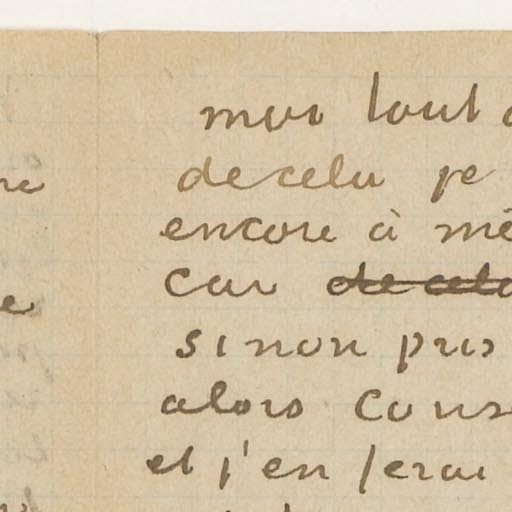 mais tout
de cela je
encore à mê
car de cela
sinon pris
alors cons
et j'en ferai